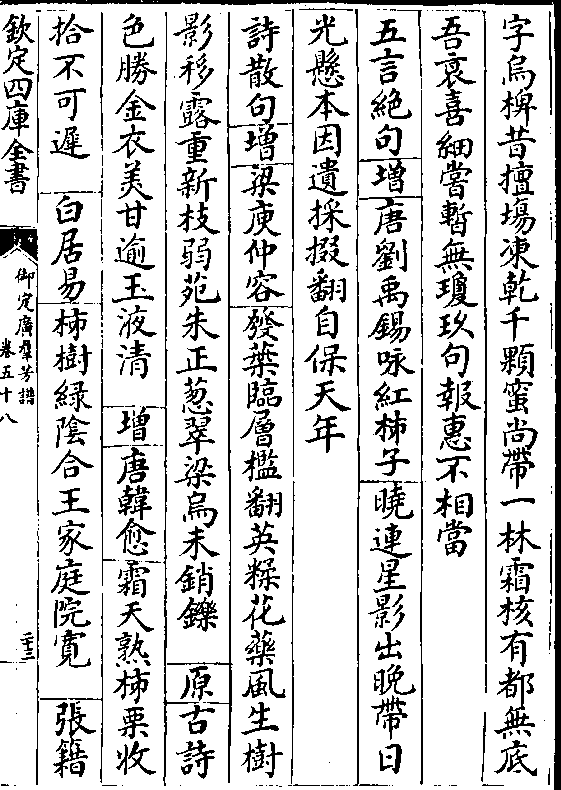 字烏椑昔擅塲凍乾千顆蜜尚帶一林霜核有都無底
吾衰喜細嘗暫無瓊玖句報惠不相當
五言絶句增唐劉禹錫咏紅柿子曉連星影出晚帶日
光懸本因遺採掇翻自保天年
詩散句增梁庾仲容發葉臨層檻翻英糅花藥風生樹
影移露重新枝弱苑朱正葱翠梁烏未銷鑠 原古詩
色勝金衣美甘逾玉液清 增唐韓愈霜天熟柿栗收
拾不可遲 白居易柿樹緑陰合王家庭院寛 張籍
欽定四庫全書
御定廣羣芳譜
卷五十八
二十三